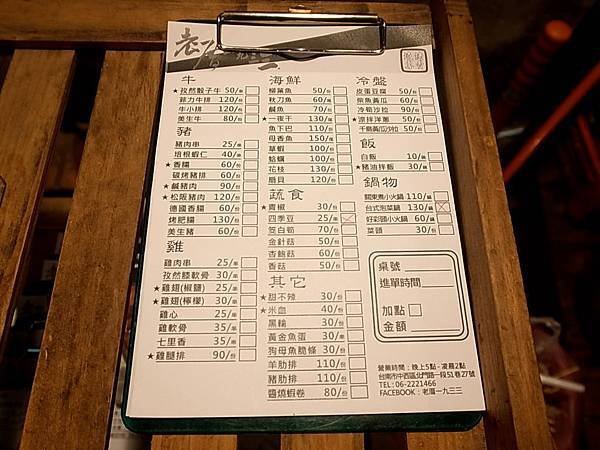 牛
★孜然骰子牛 50/串
菲力牛排 120/份
牛小排 120/份
美生牛 80/份
豬
豬肉串 25/串
培根蝦仁 40/串
★香腸 60/份
碳烤豬排 60/份
★鹹豬肉 90/份
★松阪豬肉 120/份
德國香腸 60/份
烤肥腸 130/份
美生豬 60/份
雞
雞肉串 25/串
孜然膝軟骨 30/串
★雞翅(椒鹽) 25/串
★雞翅(檸檬) 30/串
雞心 25/串
雞軟骨 35/串
七里香 35/串
★雞腿排 90/份
海鮮
柳葉魚 50/份
秋刀魚 60/份
鹹魚 70/份
★一夜干 130/份
魚下巴 110/份
母香魚 150/份
草蝦 100/份
蛤蠣 100/份
花枝 130/份
扇貝 120/份
蔬食
★青椒 30/份
四季豆 25/串
筊白筍 70/份
金針菇 50/份
杏鮑菇 60/份
香菇 50/份
其它
★甜不辣 30/份
★米血 40/份
黑輪 30/份
黃金魚蛋 30/份
狗母魚脆條 30/份
羊肋排 110/份
豬肋排 110/份
醬燒蝦卷 80/份
冷盤
皮蛋豆腐 50/份
柴魚黃瓜 60/份
冷筍沙拉 90/份
★涼拌洋蔥 50/份
千島黃瓜沙拉 50/份
飯
白飯 10/碗
★豬油拌飯 30/碗
鍋物
關東煮小火鍋 110/鍋
台式泡菜鍋 130/鍋
好彩頭小火鍋 60/鍋
菜頭 30/份
桌號
進單時間
加點
金額
營業時間:晚上5點-凌晨2點
台南市中西區北門路一段51巷27號
TEL:06-2221466
FACEBOOK:老厝一九三三